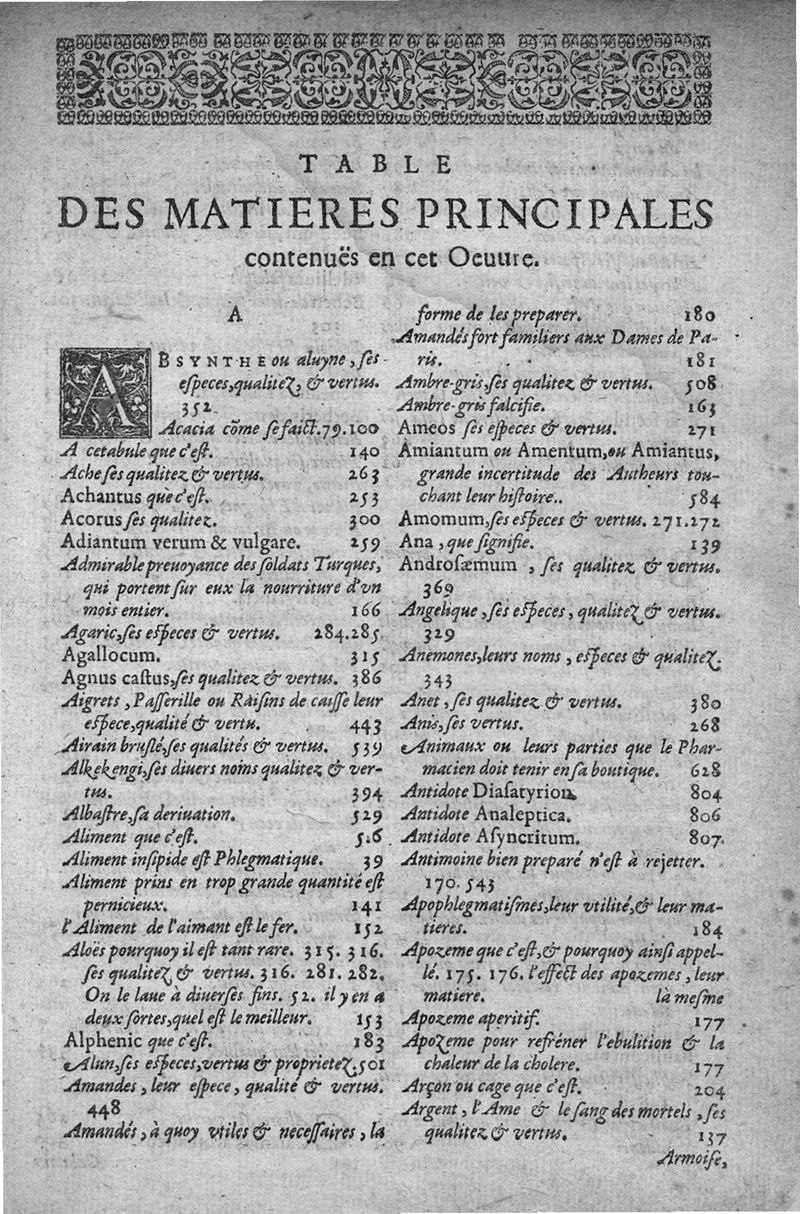 TABLE
DES MATIERES PRINCIPALES
contenuës en cet Oeuure.
A
ABSYNTHE ou aluyne, ſes
eſpeces, qualitez, & vertus.
352.
Acacia cõme ſe faict. 79. 100
A cetabule que c'eſt. 140
Ache ſes qualitez & vertus. 263
Achantus que c'eſt. 253
Acorus ſes qualitez. 300
Adiantum verum & vulgare. 259
Admirable preuoyance des ſoldats Turques,
qui portent ſur eux la nourriture d'vn
mois entier. 166
Agaric, ſes eſpeces & vertus. 284. 285.
Agallocum. 315
Agnus caſtus, ſes qualitez & vertus. 386
Aigrets, Paſſerille ou Raiſins de caiſſe leur
eſpece, qualité & vertu. 443
Airain bruſlé, ſes qualités & vertus. 539
Alkekengi, ſes diuers noms qualitez & ver-
tus. 394
Albaſtre, ſa deriuation. 529
Aliment que c'eſt.
Aliment inſipide eſt Phlegmatique. 39
Aliment prins en trop grande quantité eſt
pernicieux. 141
l'Aliment de l'aimant eſt le fer. 152
Aloës pourquoy il eſt tant rare. 315. 316.
ſes qualitez & vertus. 316. 281. 282.
On le laue à diuerſes fins. 52. il y en a
deux ſortes, quel eſt le meilleur. 153
Alphenic que c'eſt. 183
Alun, ſes eſpeces, vertus & proprietez. 501
Amandes, leur eſpece, qualité & vertus.
448
Amandés, à quoy vtiles & neceſſaires, la
forme de les preparer. 180
Amandés fort familiers aux Dames de Pa-
ris. 181
Ambre-gris, ſes qualitez & vertus. 508
Ambre-gris falciſie. 163
Ameos ſes eſpeces & vertus. 271
Amiantum ou Amentum, ou Amiantus,
grande incertitude des Autheurs tou-
chant leur hiſtoire.. 584
Amomum, ſes eſpeces & vertus. 271. 272
Ana, que ſignifie. 139
Androſæmum, ſes qualitez & vertus.
369
Angelique, ſes eſpeces, qualitez & vertus.
329
Anemones, leurs noms, eſpeces & qualitez.
343
Anet, ſes qualitez & vertus. 380
Anis, ſes vertus. 268
Animaux ou leurs parties que le Phar-
macien doit tenir en ſa boutique. 628
Antidote Diaſatyrion. 804
Antidote Analeptica. 806
Antidote Aſyncritum. 807.
Antimoine bien preparé n'eſt à rejetter.
170. 543
Apophlegmatiſmes, leur vtilité, & leur ma-
tieres. 184
Apozeme que c'eſt, & pourquoy ainſi appel-
lé. 175. 176. l'effect des apozemes, leur
matiere. là meſme
Apozeme aperitif. 177
Apozeme pour refréner l'ebulition & la
chaleur de la cholere. 177
Arçon ou cage que c'eſt. 204
Argent, l'Ame & le ſang des mortels, ſes
qualitez & vertus. 137
Armoiſe,